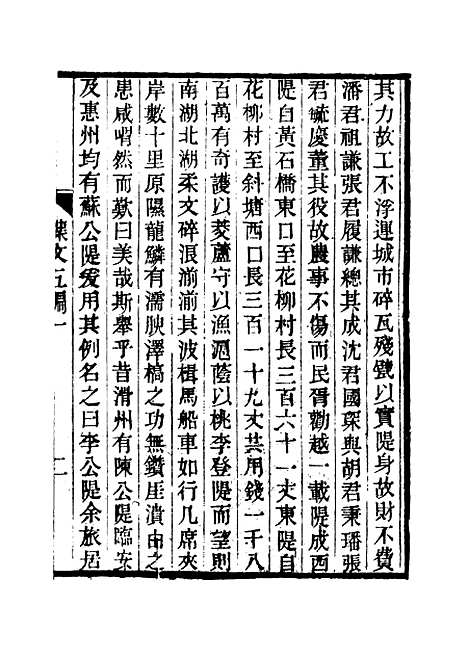 其力故工不浮運城市碎瓦殘甓以實隄身故財不費
潘君祖謙張君履謙總其成沈君國琛與胡君秉璠張
君毓慶董其役故農事不傷而民胥勸越一載隄成西
隄自黃石橋東口至花柳村長三百六十一丈東隄自
花柳村至斜塘西口長三百一十九丈共用錢一千八
百萬有奇護以菱蘆守以漁滬蔭以桃李登隄而望則
南湖北湖柔文碎浪湔湔其波楫馬船車如行几席夾
岸數十里原隰龍鱗有濡腴澤槁之功無鑽崖潰出之
患咸喟然而歎曰美哉斯舉乎昔滑州有陳公隄臨安
及惠州均有蘇公隄爰用其例名之曰李公隄余旅居
襍文五編一
二